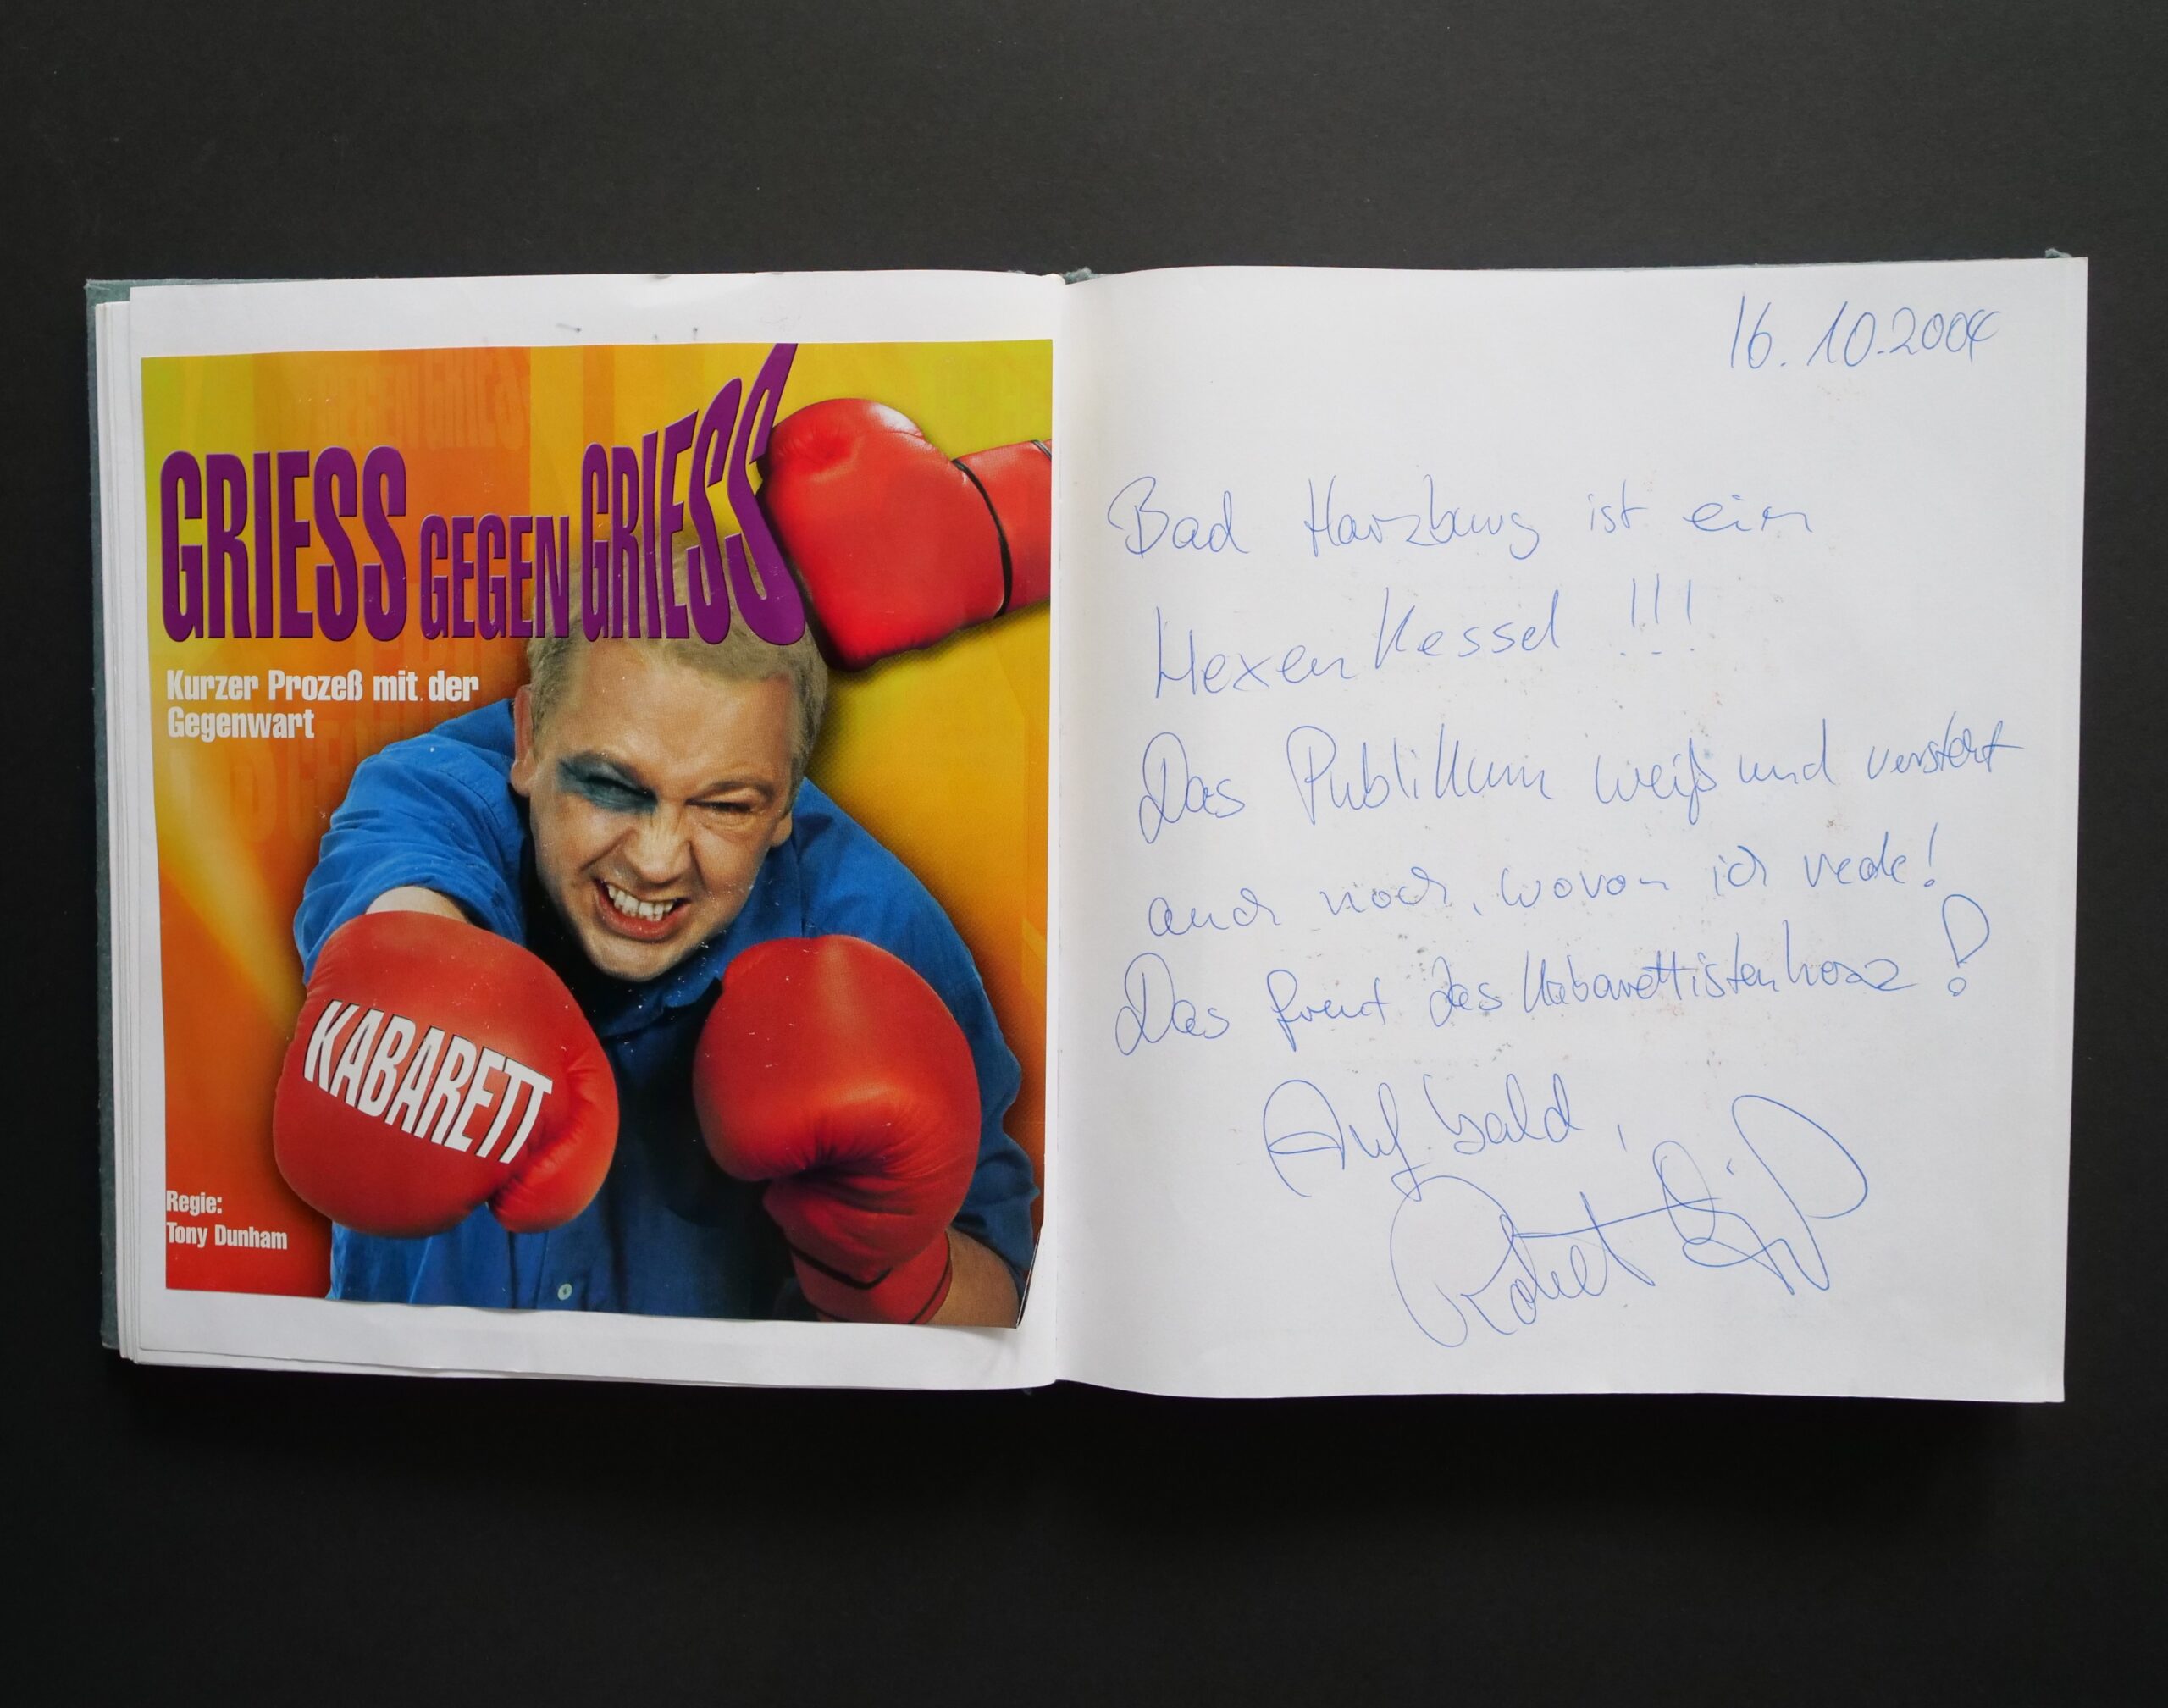 GRIESS GEGEN GRIESS
Kurzer Prozeß mit der
Gegenwart
KABARETT
Regie:
Tony Dunham
16.10.2004
Bad Harzburg ist ein
Hexenkessel !!!
Das Publikum weiß und versteht
auch noch, wovon ich rede!
Das freut das Kabarettistenherz!
Auf bald,
Robert Griess